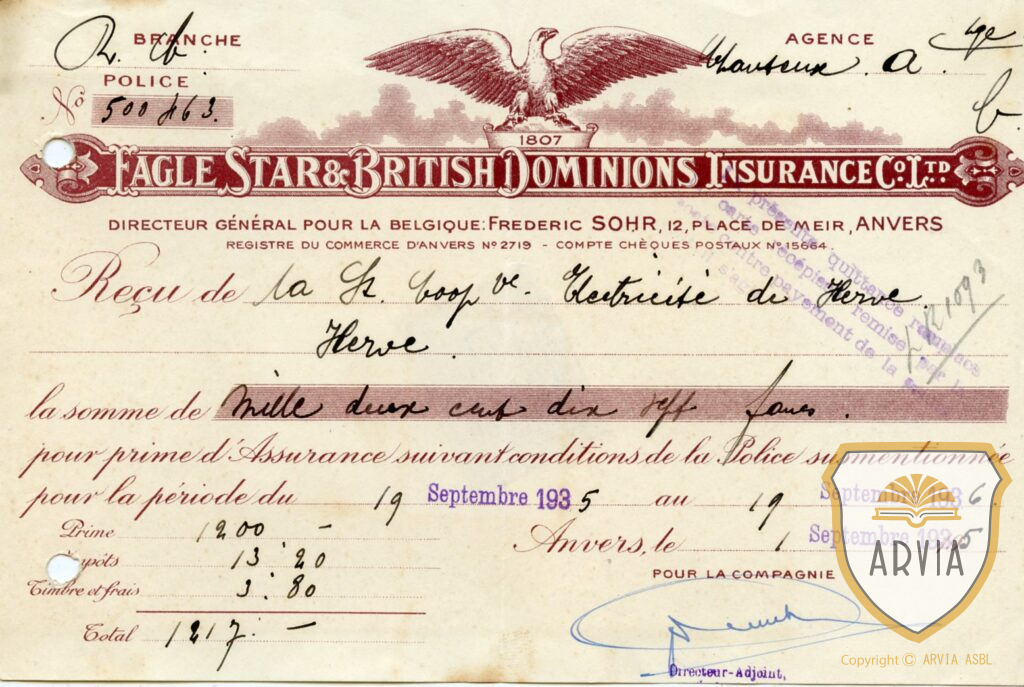 BRANCHE
R. Cb.
POLICE
No 500463.
AGENCE
A. 
b
1807
EAGLE STAR & BRITISH DOMINIONS INSURANCE Co. LTD
DIRECTEUR GÉNÉRAL POUR LA BELGIQUE: FREDERIC SOHR, 12, PLACE DE MEIR, ANVERS
REGISTRE DU COMMERCE D'ANVERS No 2719 - COMPTE CHÈQUES POSTAUX No 15664.
présente quittance remplace
carte récépissé remise par la
contre payement de la
Reçu de la St Coopve. Electricité de Herve.
Herve.
la somme de Mille deux cent dix sept francs.
pour prime d'Assurance suivant conditions de la Police susmentionnée
pour la période du 19 Septembre 1935 au 19 Septembre 1936.
Prime 1200 -
13.20
Timbre et frais 3.80
Total 1217. -
Anvers, le 1 Septembre 1935
POUR LA COMPAGNIE
Directeur-Adjoint,
ARVIA
Copyright © ARVIA ASBL